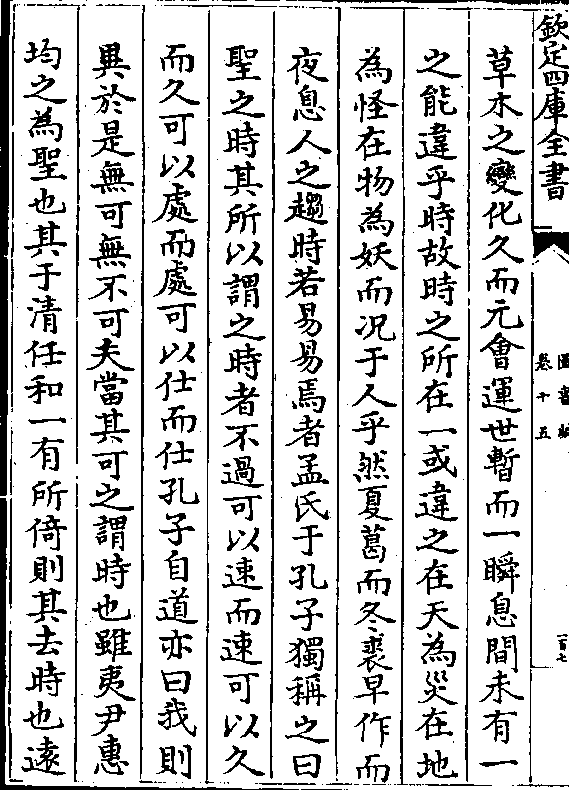 欽定四庫全書
圖書編
卷十五
百七
草木之變化久而元會運世暫而一瞬息間未有一
之能違乎時故時之所在一或違之在天為災在地
為怪在物為妖而况于人乎然夏葛而冬裘早作而
夜息人之趨時若易易焉者孟氏于孔子獨稱之曰
聖之時其所以謂之時者不過可以速而速可以久
而久可以處而處可以仕而仕孔子自道亦曰我則
異於是無可無不可夫當其可之謂時也雖夷尹惠
均之為聖也其于清任和一有所倚則其去時也遠